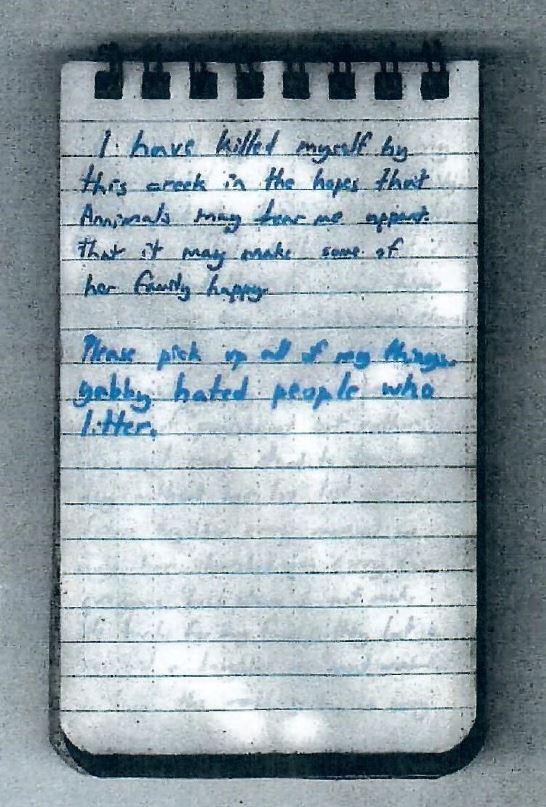 I have killed myself by
this creek in the hopes that
Annimals may tear me appart.
that it may make some of
her family happy.
Please pick up all of my things.
gabby hated people who
litter.